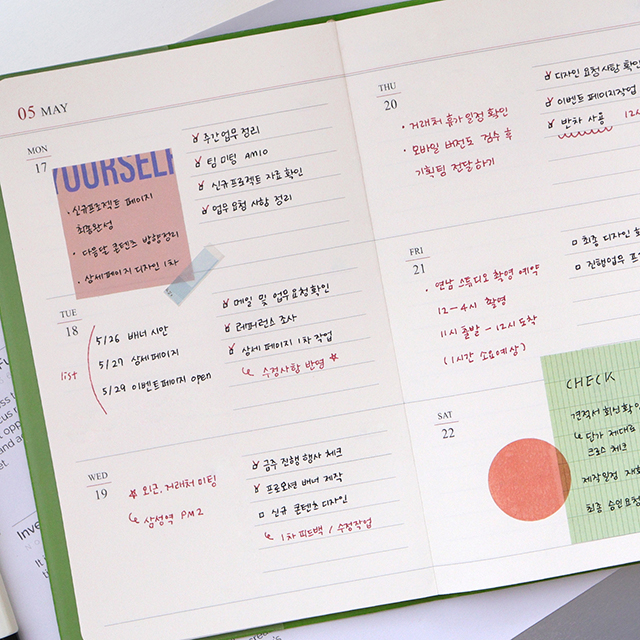 05 MAY
MON
17
YOURSELF
· 신규프로젝트 페이지
최종완성
· 다음달 콘텐츠 방향정리
· 상세페이지 디자인 1차
주간업무 정리
팀 미팅 AM10
신규프로젝트 자료 확인
업무 요청 사항 정리
TUE
18
list
5/26 배너 시안
5/27 상세페이지
5/29 이벤트페이지 open
메일 및 업무요청확인
레퍼런스 조사
상세 페이지 1차 작업
↳ 수정사항 반영 ★
WED
19
★ 외근, 거래처 미팅
↳ 삼성역 PM2
금주 진행 행사 체크
프로모션 배너 제작
신규 콘텐츠 디자인
↳ 1차 피드백 / 수정작업
THU
20
· 거래처 휴가 일정 확인
· 모바일 버전도 검수 후
기획팀 전달하기
디자인 요청사항 확인
이벤트 페이지작업
반차 사용
FRI
21
· 연남 스튜디오 촬영 예약
12-4시 촬영
11시 출발 - 12시 도착
(1시간 소요예상)
최종 디자인
진행업무
SAT
22
CHECK
견적서 회신 확인
↳ 단가 제대로
크로스 체크
제작일정
최종 승인요청